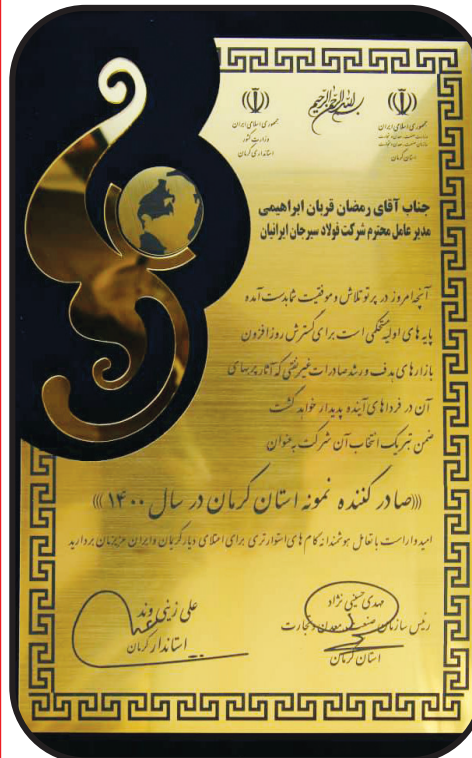 بسم الله الرحمن الرحیم
جمهوری اسلامی ایران
وزارت صنعت، معدن و تجارت
سازمان صنعت، معدن و تجارت
استان کرمان
جمهوری اسلامی ایران
وزارت کشور
استانداری کرمان
جناب آقای رمضان قربان ابراهیمی
مدیر عامل محترم شرکت فولاد سیرجان ایرانیان
آنچه امروز در پرتو تلاش و موفقیت شما بدست آمده
پایه های اولیه مستحکمی است برای گسترش روزافزون
بازارهای هدف و رشد صادرات غیرنفتی که آثار پربهای
آن در فرداهای آینده پدیدار خواهد گشت
ضمن تبریک انتخاب آن شرکت به عنوان
((صادر کننده نمونه استان کرمان در سال ۱۴۰۰))
امیدوار است با تعامل هوشمندانه گام های استوارتری برای اعتلای دیار کریمان و ایران عزیزمان بردارید
مهدی حسینی نژاد
رئیس سازمان صنعت، معدن و تجارت
استان کرمان
علی زینی وند
استاندار کرمان